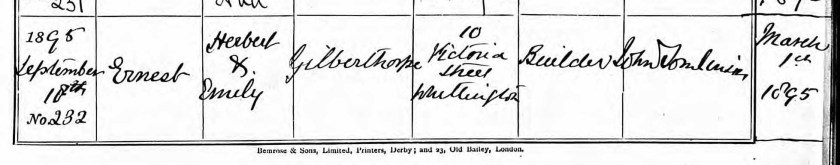 1895
September
18th
No 232
Ernest
Herbert
&
Emily
Gilberthorpe
10
Victoria
Street
Whittington
Builder
John Tomlinson
March
1st
1895
Bemrose & Sons, Limited, Printers, Derby; and 23, Old Bailey, London.